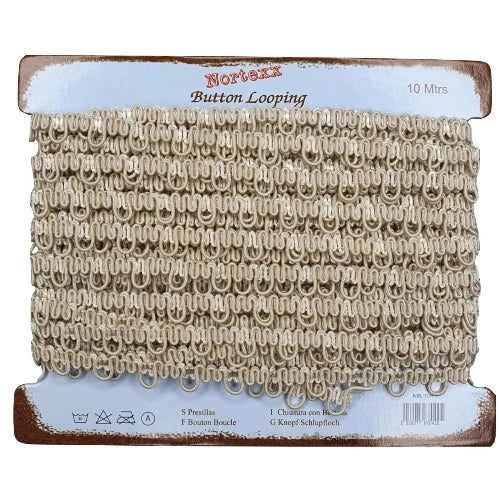 Nortexx
Button Looping
10 Mtrs
S Presillas
I Chiusura con
F Bouton Boucle
G Knopf Schlupfloch
A